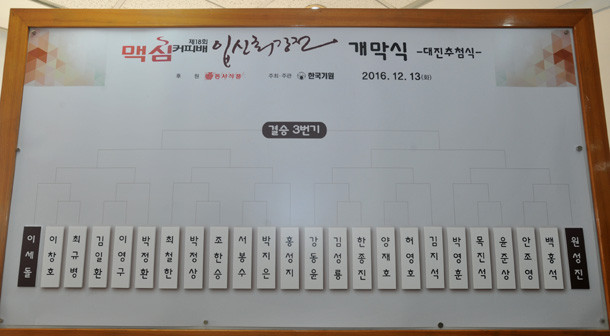 제18회
맥심커피배 입신최강전 개막식 -대진추첨식-
후 원 동서식품 주최·주관 한국기원 2016. 12. 13(화)
결승 3번기
이세돌
이창호
최규병
김일환
이영구
박정환
최철한
박정상
조한승
서봉수
박지은
홍성지
강동윤
김성룡
한종진
양재호
허영호
김지석
박영훈
목진석
윤준상
안조영
백홍석
원성진